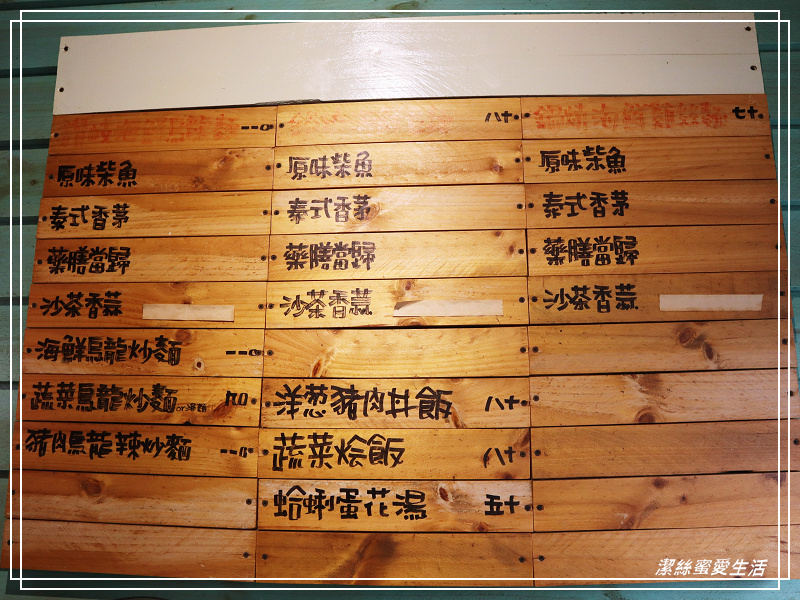 一一〇
原味柴魚
泰式香茅
藥膳當歸
沙茶香蒜
海鮮烏龍炒麵 一一〇
蔬菜烏龍炒麵
豬肉烏龍辣炒麵 一一〇
八十
原味柴魚
泰式香茅
藥膳當歸
沙茶香蒜
洋葱豬肉丼飯 八十
蔬菜烩飯 八十
蛤蜊蛋花湯 五十
鍋燒海鮮雞絲麵 七十
原味柴魚
泰式香茅
藥膳當歸
沙茶香蒜
潔絲蜜愛生活